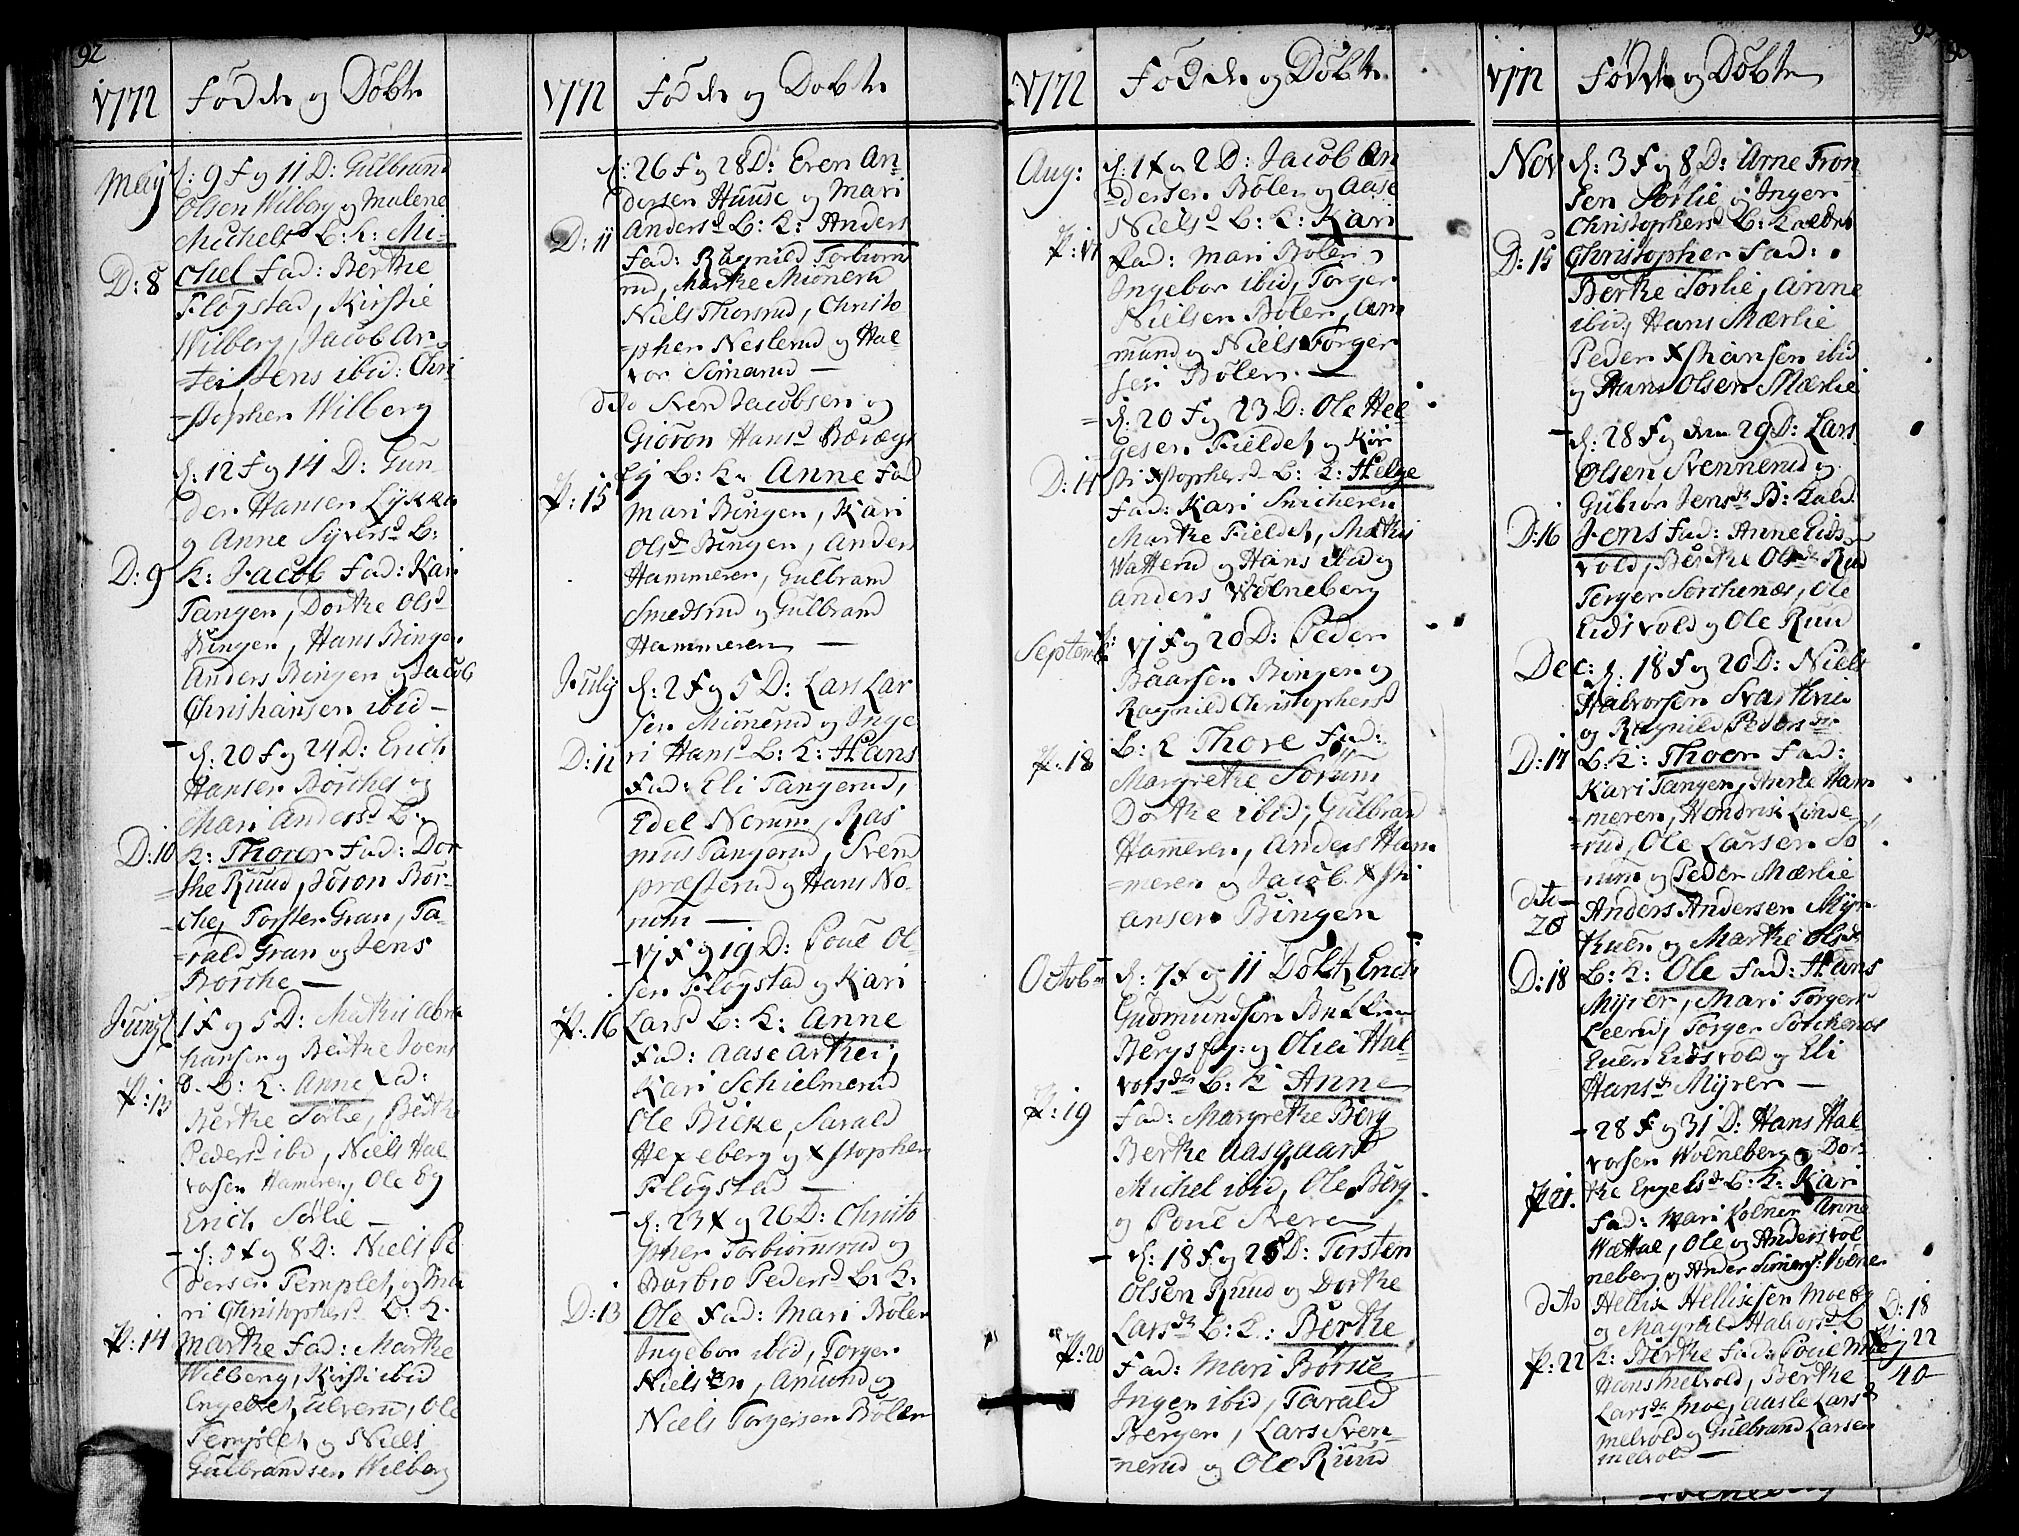 92
1772 Fødde og Døbte
May d: 9 F og 11 D: Gulbrand
Olsen Wilberg og Malene
Michelsd L: K: Mi-
D: 8 chel Fad: Berthe
Fløgstad, Kirstie
Wilberg, Jacob Ar-
=tei, Jens ibid: Chri
=stopher Wilberg
d: 12 F og 14 D: Gun-
der Hansen Lykke
og Anne Syversd L:
D: 9 K: Jacob Fad: Kari
Tangen, Dorthe Olsd
Bingen, Hans Bingen
Anders Bingen og Jacob
Christiansen ibid -
d: 20 F og 24 D: Erich
Hansen Børchej og
Mari Andersd L:
D: 10 K: Thorer Fad: Dor
=the Ruud, Jøron Bør-
=chej Torsten Gran, Ta-
=rald Gran og Jens
Børche -
Junij 1 F og 5 D: Mathis Abra
hansen og Berthe Joens
d. L: K: Anne Fad:
P: 13 Berthe Sørlie, Berthe
Pedersd ibid, Niels Hal
vorsen Hameren, Ole og
Erich Sørlie -
- d: 5 F og 8 D: Niels Pe
dersen Templet og Ma
ri Christophersd L: K.
P: 14 Marthe Fad: Marthe
Wilberg, Kirsti ibid
Engebret Ulverud, Ole
Templet og Niels
Gulbrandsen Wilberg
1772 Fødde og Døbte
d: 26 F og 28 D: Even An-
dersen Huuse og Mari
D: 11 Andersd L: K: Anders
Fad: Ragnild Torbiørns
rud, Marthe Miønerud
Niels Thorsrud, Christo
=pher Nesterud og Hal-
vor Simarud -
dito Sven Jacobsen og
Giøron Hansd Bævægs
ej L: K. Anne Fad
P: 15 Mari Bingen, Kari
Olsd Bingen, Anders
Hammeren, Gulbrand
Smedsrud og Gulbrand
Hammeren -
July d: 2 F og 5 D: Lars Lar
sen Miønerud og Inge
D: 12 ri Hansd L: K: Hans
Fad: Eli Tangerud,
Edel Norum, Ras
mus Tangerud, Svend
præsterud og Hans No-
rum -
- 17 F og 19 D: Poul Ol-
sen Fløgstad og Kari
P: 16 Larsd L: K: Anne
Fad: Aase Arthei,
Kari Schielmerud
Ole Bicke, Tarald
Hexeberg og Xstophen
Fløgstad -
- d: 23 F og 26 D: Christo
pher Torbiørnsrud og
Barbro Pedersd L: K:
D: 13 Ole Fad: Mari Bølen
Ingebor ibid, Torger
Nielsen, Amund og
Niels Torgersen Bølen
1772 Fødde og Døbte
Aug: d: 1 F og 2 D: Jacob An
=dersen Bølen og Aase
Nielsd L: K: Kari
P: 17 Fad: Mari Bølen,
Ingebor ibid, Torger
Nielsen Bølen, Am
mund og Niels Torger
sen Bølen. -
= d: 20 F og 23 D: Ole Hel
gesen Fieldet og Kir
D: 14 sti Xstophersd L: K: Helge
Fad: Kari Snicheren
Marthe Fieldet, Mathis
Watterud og Hans ibid og
Anders Wølneberg
Septemb: d: 17 F og 20 D: Peder
Baarsen Bingen og
Ragnild Christophersd
P: 18 L: K Thore Fad:
Margrethe Sørum
Dorthe ibid, Gulbrand
Hameren, Anders Ham
=meren og Jacob Xsti
ansen Bingen
Octob= d: 7 F og 11 Døbt, Erich
Gudmundsøn Bukken
Bergs Ey: og Oliei Hal-
vorsdr L: K Anne
P: 19 Fad: Margrethe Berg
Berthe Aasgaard
Michel ibid, Ole Berg
og Poul Sveren,
- d: 18 F og 25 D: Torsten
Olsen Ruud og Dorthe
Larsdr L: K: Berthe
P: 20 Fad: Mari Børcke
Ingen ibid, Tarald
Bergen, Lars Sven-
=nerud og Ole Ruud
93
1772 Fødde og Døbte
Nov d: 3 F og 8 D: Arne Tron
sen Sørlie og Inger
Christophersd L: K nedre
D: 15 Christopher Fad:
Berthe Sørlie, Anne
ibid, Hans Mærlie
Peder Xstiansen ibid
og Hans Olsen Mærlie
- d: 28 F og den 29 D: Lars
Olsen Svennerud og
Gubior Jensdr B: Kald
D: 16 Jens Fad: Anne Eids
vold, Berthe Olsdr Rud
Torger Sørchenæs, Ole
Eidsvold og Ole Ruud
Dec: d. 18 F og 20 D: Niels
Halvorsen Svasthrie
og Ragnild Pedersdr
D: 17 L: K: Thoer Fad:
Kari Tangen, Anne Ham
=meren, Hendrik Linde
=rud, Ole Larsen So
rum og Peder Mærlie
dito Anders Andersen Myr
20 Kuen og Marthe Olsdr
D: 18 L: K: Ole Fad: Hans
Myrer, Mari Torgersd
Leerud, Torger Sørchenæs
Even Eidsvold og Eli
Hansdr Myrer -
- 28 F og 31 D: Hans Hal
vorsen Wolneberg og Dor-
P: 21. the Engelsd L: K: Kari
Fad: Mari Kolner Anne
Wattue, Ole og Anders Vol
neberg og Ander Simens: Volne
dito Hellix Hellixsen Moe og D: 18
og Magrethe Halvorsd L P: 22
P: 22 K: Berthe Fad: Poul Moe 40
Hans Melvold, Berthe
Larsdr Moe, Aasle Larsd
Melvold og Gulbrand Larsen
Melvold -